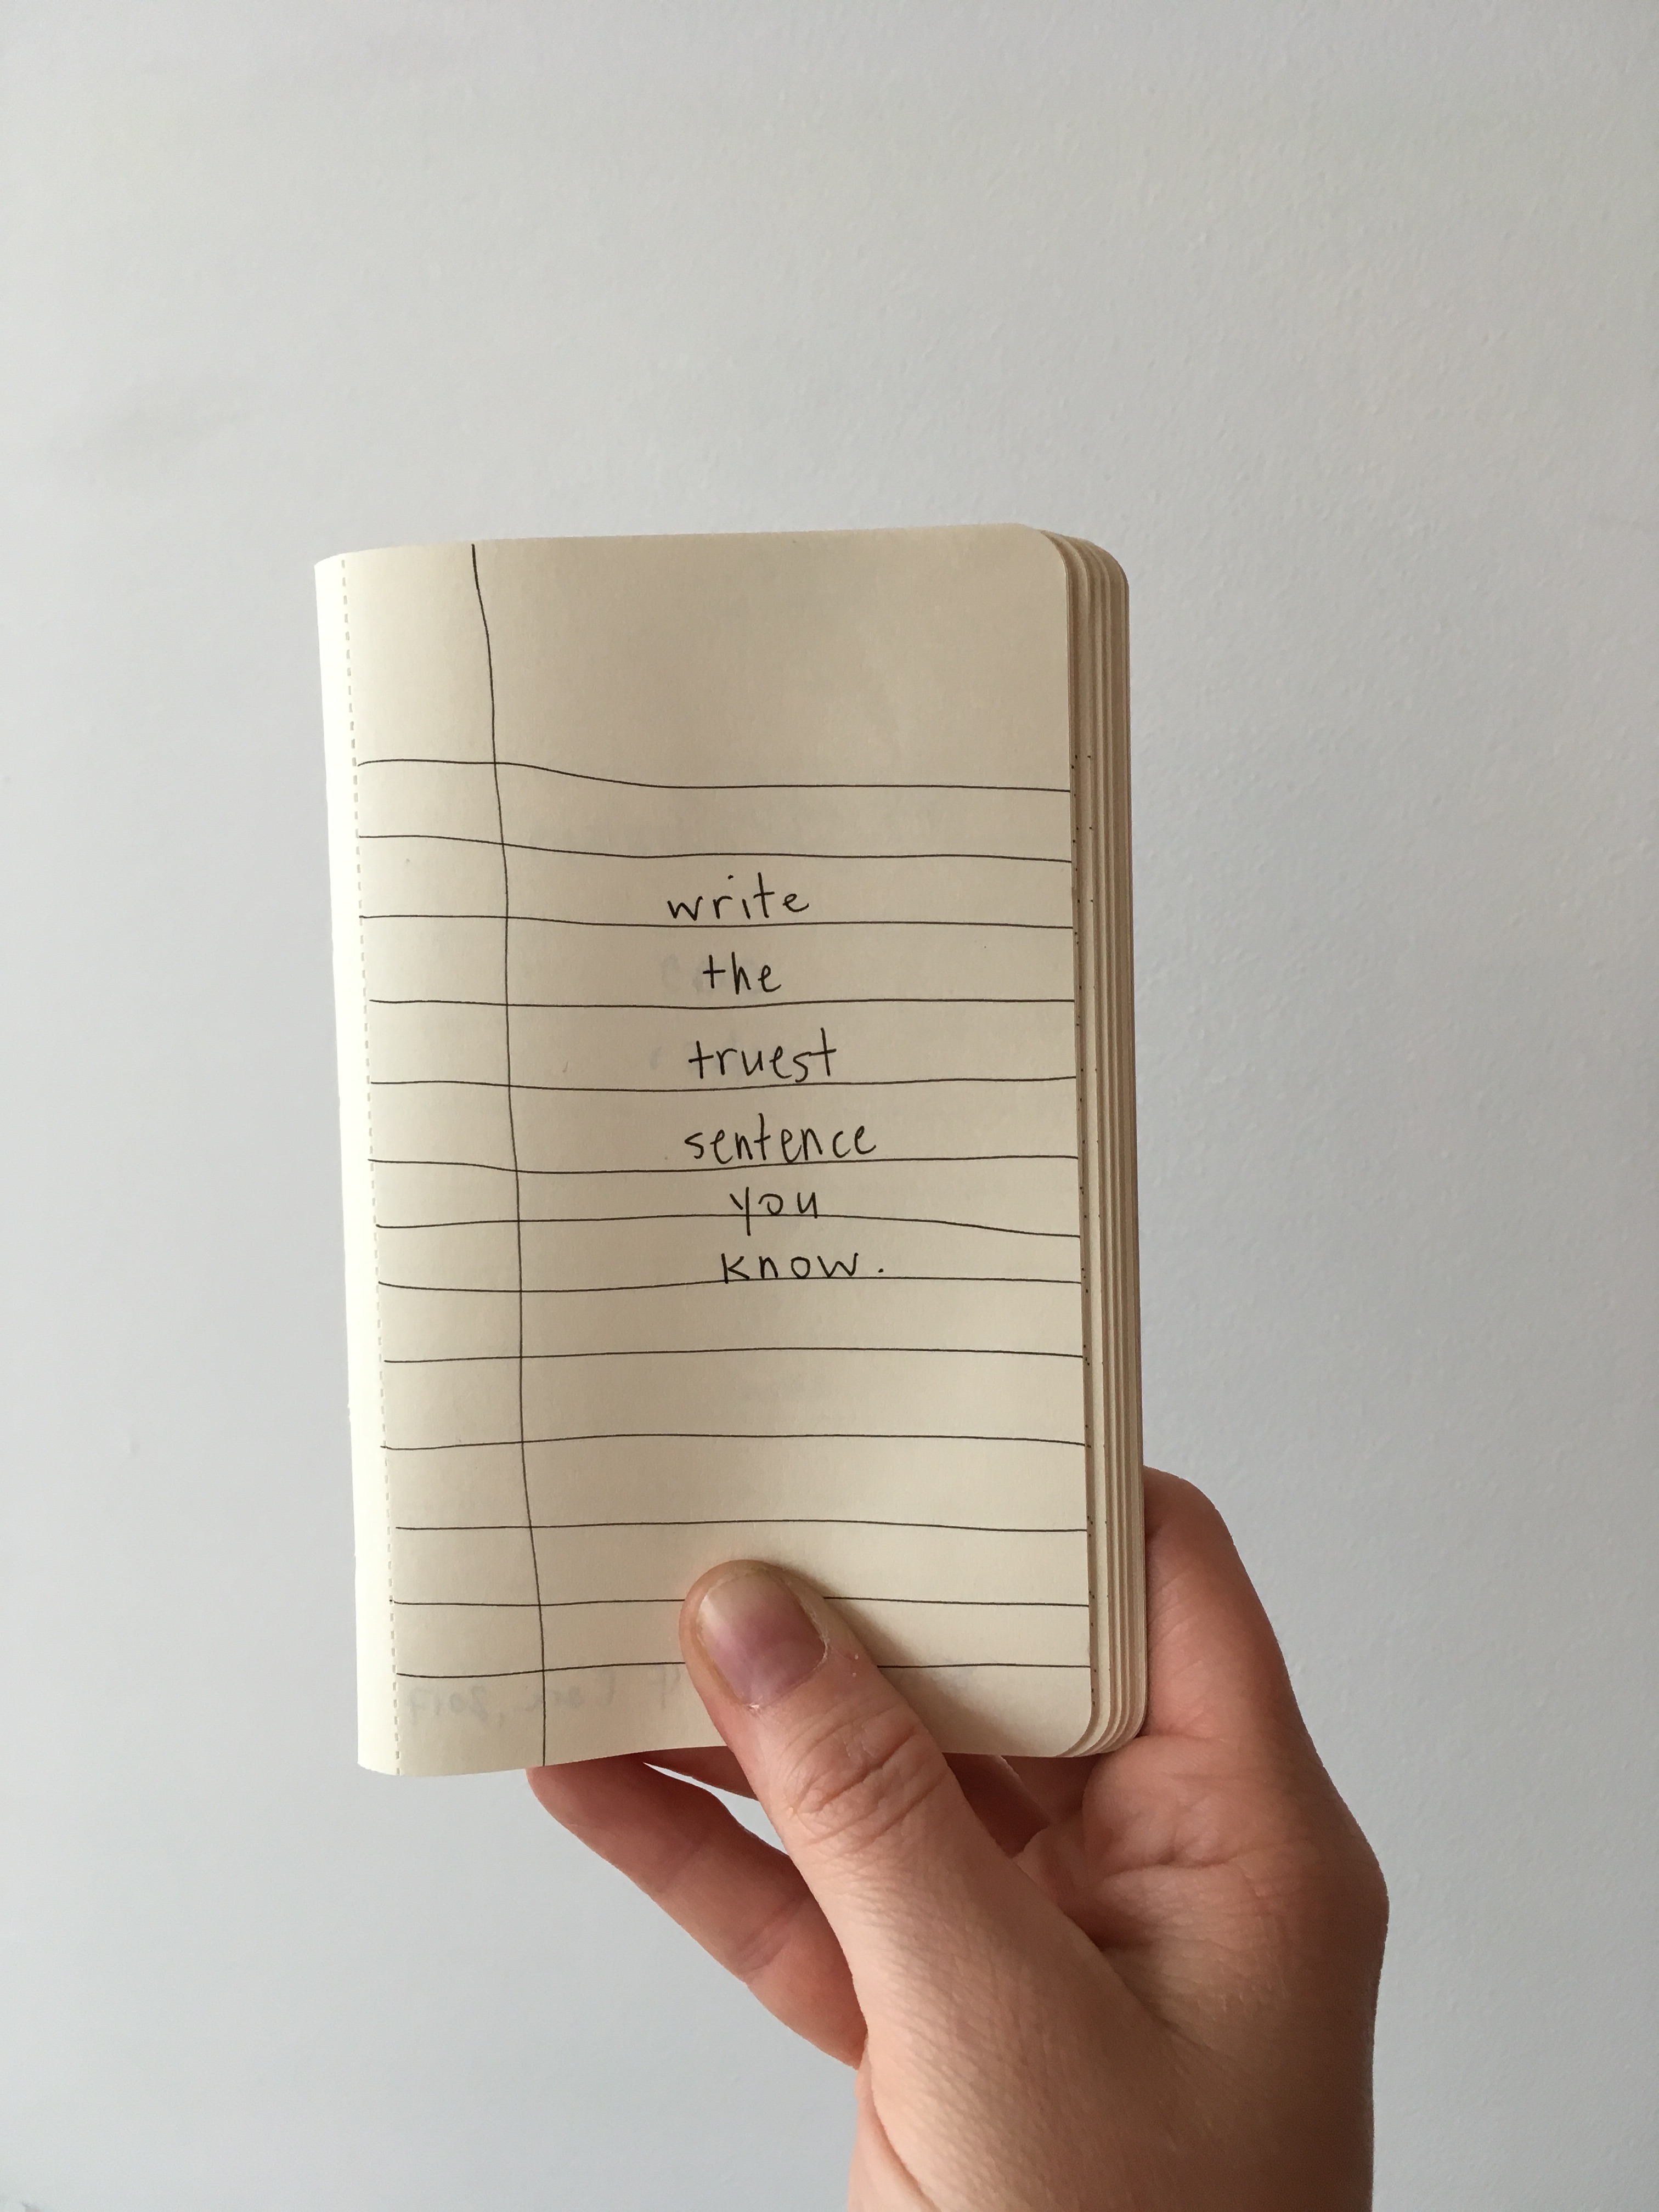 write
the
truest
sentence
you
know.